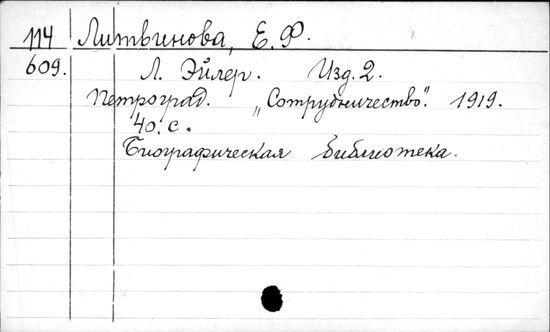 114 Литвинова, Е. Ф.
609. Л. Эйлер. Изд. 2.
Петроград. „Сотрудничество". 1919.
40. с.
Биографическая библиотека.